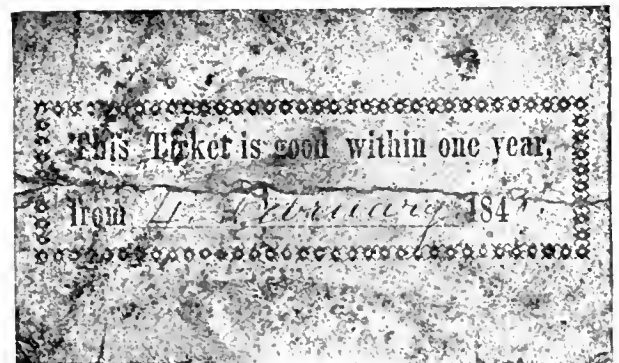 This Ticket is good within one year,
from February 184